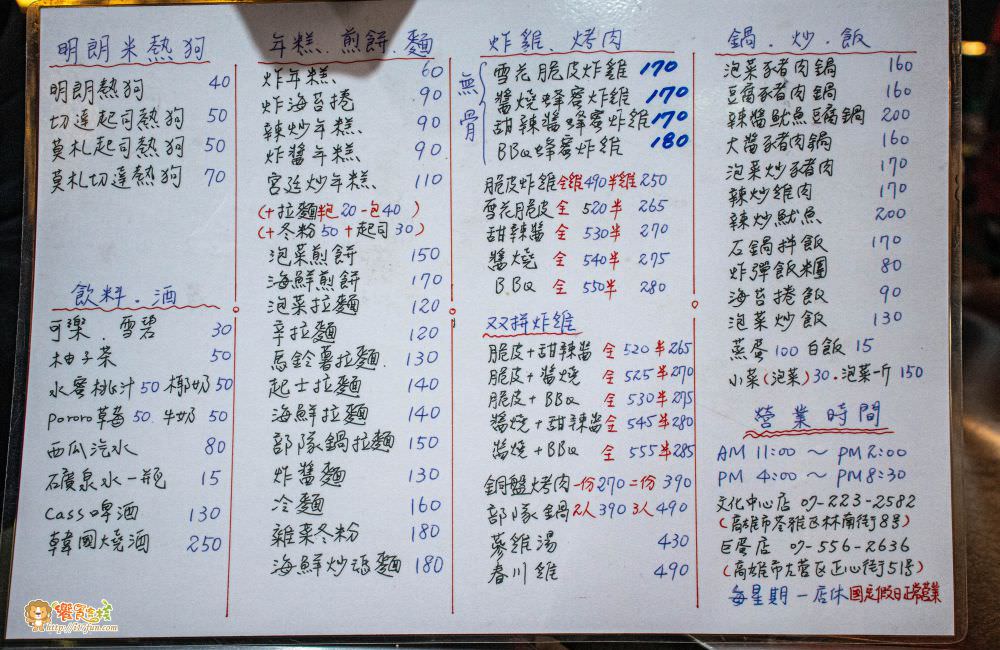 明朗米熱狗
明朗熱狗 40
切達起司熱狗 50
莫札起司熱狗 50
莫札切達熱狗 70
飲料.酒
可樂.雪碧 30
柚子茶 50
水蜜桃汁50 椰奶50
pororo草莓50 牛奶50
西瓜汽水 80
石礦泉水一瓶 15
Cass啤酒 130
韓國燒酒 250
年糕.煎餅.麵
炸年糕 60
炸海苔捲 90
辣炒年糕 90
炸醬年糕 90
宮廷炒年糕 110
(+拉麵半包20 一包40)
(+冬粉50+起司30)
泡菜煎餅 150
海鮮煎餅 170
泡菜拉麵 120
辛拉麵 120
馬鈴薯拉麵 130
起士拉麵 140
海鮮拉麵 140
部隊鍋拉麵 150
炸醬麵 130
冷麵 160
雜菜冬粉 180
海鮮炒瑪麵 180
炸雞、烤肉
無骨
雪花脆皮炸雞 170
醬燒蜂蜜炸雞 170
甜辣醬蜂蜜炸雞 170
BBQ蜂蜜炸雞 180
脆皮炸雞全雞490半雞250
雪花脆皮 全 520 半 265
甜辣醬 全 530半 270
醬燒 全 540半 275
BBQ 全 550半 280
双拼炸雞
脆皮+甜辣醬 全 520 半265
脆皮+醬燒 全 525半270
脆皮+BBQ 全 530半275
醬燒+甜辣醬 全 545半280
醬燒+BBQ 全 555半285
銅盤烤肉一份270二份390
部隊鍋2人390 3人490
蔘雞湯 430
春川雞 490
鍋.炒.飯
泡菜豬肉鍋 160
豆腐豬肉鍋 160
辣醬魷魚豆腐鍋 200
大醬豬肉鍋 160
泡菜炒豬肉 170
辣炒雞肉 170
辣炒魷魚 200
石鍋拌飯 170
炸彈飯糰 80
海苔捲飯 90
泡菜炒飯 130
蒸蛋100 白飯15
小菜(泡菜)30.泡菜一斤150
營業時間
AM 11:00 ~ PM 2:00
PM 4:00 ~ PM 8:30
文化中心店 07-223-2582
(高雄市苓雅區林南街8号)
巨蛋店 07-556-2636
(高雄市左營區正心街51号)
每星期一店休國定假日正常營業
http://i1-fun.com